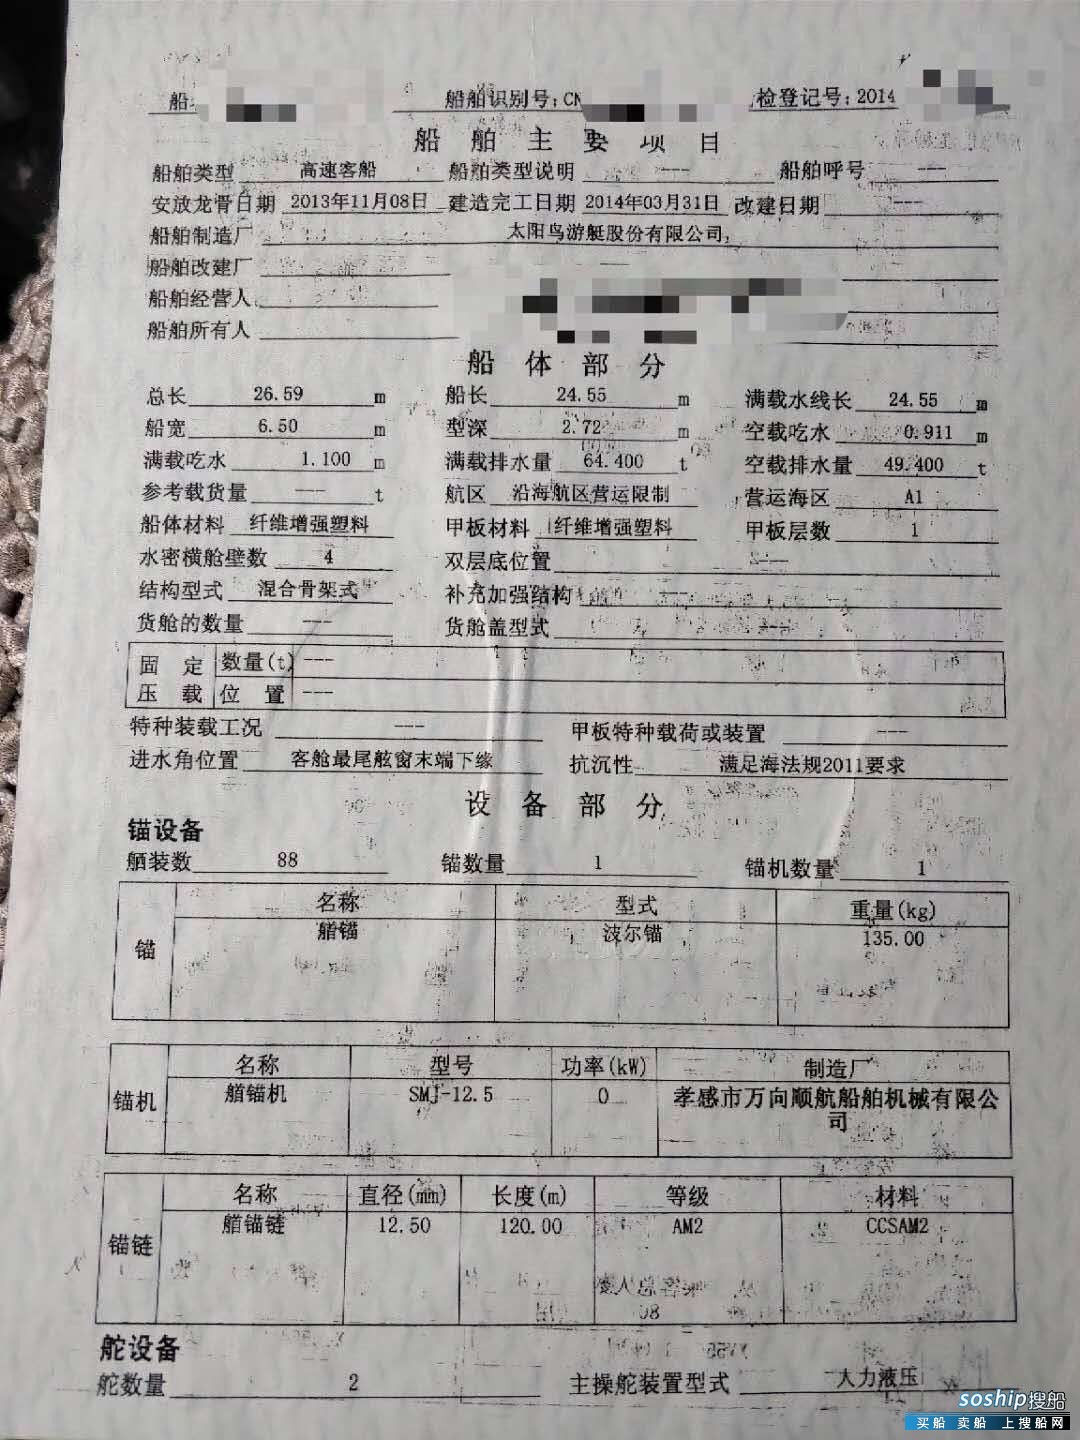 船 船舶识别号:CN 检登记号:2014
船舶主要项目
船舶类型 高速客船 船舶类型说明 --- 船舶呼号 ---
安放龙骨日期 2013年11月08日 建造完工日期 2014年03月31日 改建日期 ---
船舶制造厂 太阳鸟游艇股份有限公司
船舶改建厂
船舶经营人
船舶所有人
船体部分
总长 26.59 m 船长 24.55 m 满载水线长 24.55 m
船宽 6.50 m 型深 2.72 m 空载吃水 0.911 m
满载吃水 1.100 m 满载排水量 64.400 t 空载排水量 49.400 t
参考载货量 --- t 航区 沿海航区营运限制 营运海区 A1
船体材料 纤维增强塑料 甲板材料 纤维增强塑料 甲板层数 1
水密横舱壁数 4 双层底位置 ---
结构型式 混合骨架式 补充加强结构 ---
货舱的数量 --- 货舱盖型式 ---
固定 数量(t) ---
压载 位置 ---
特种装载工况 --- 甲板特种载荷或装置 ---
进水角位置 客舱最尾舷窗末端下缘 抗沉性 满足海法规2011要求
设备部分
锚设备
舾装数 88 锚数量 1 锚机数量 1
锚 名称 型式 重量(kg)
艏锚 波尔锚 135.00
锚机 名称 型号 功率(kW) 制造厂
艏锚机 SMJ-12.5 0 孝感市万向顺航船舶机械有限公
司
锚链 名称 直径(mm) 长度(m) 等级 材料
艏锚链 12.50 120.00 AM2 CCSAM2
舵设备
舵数量 2 主操舵装置型式 人力液压
soship搜船
买船 卖船 上搜船网